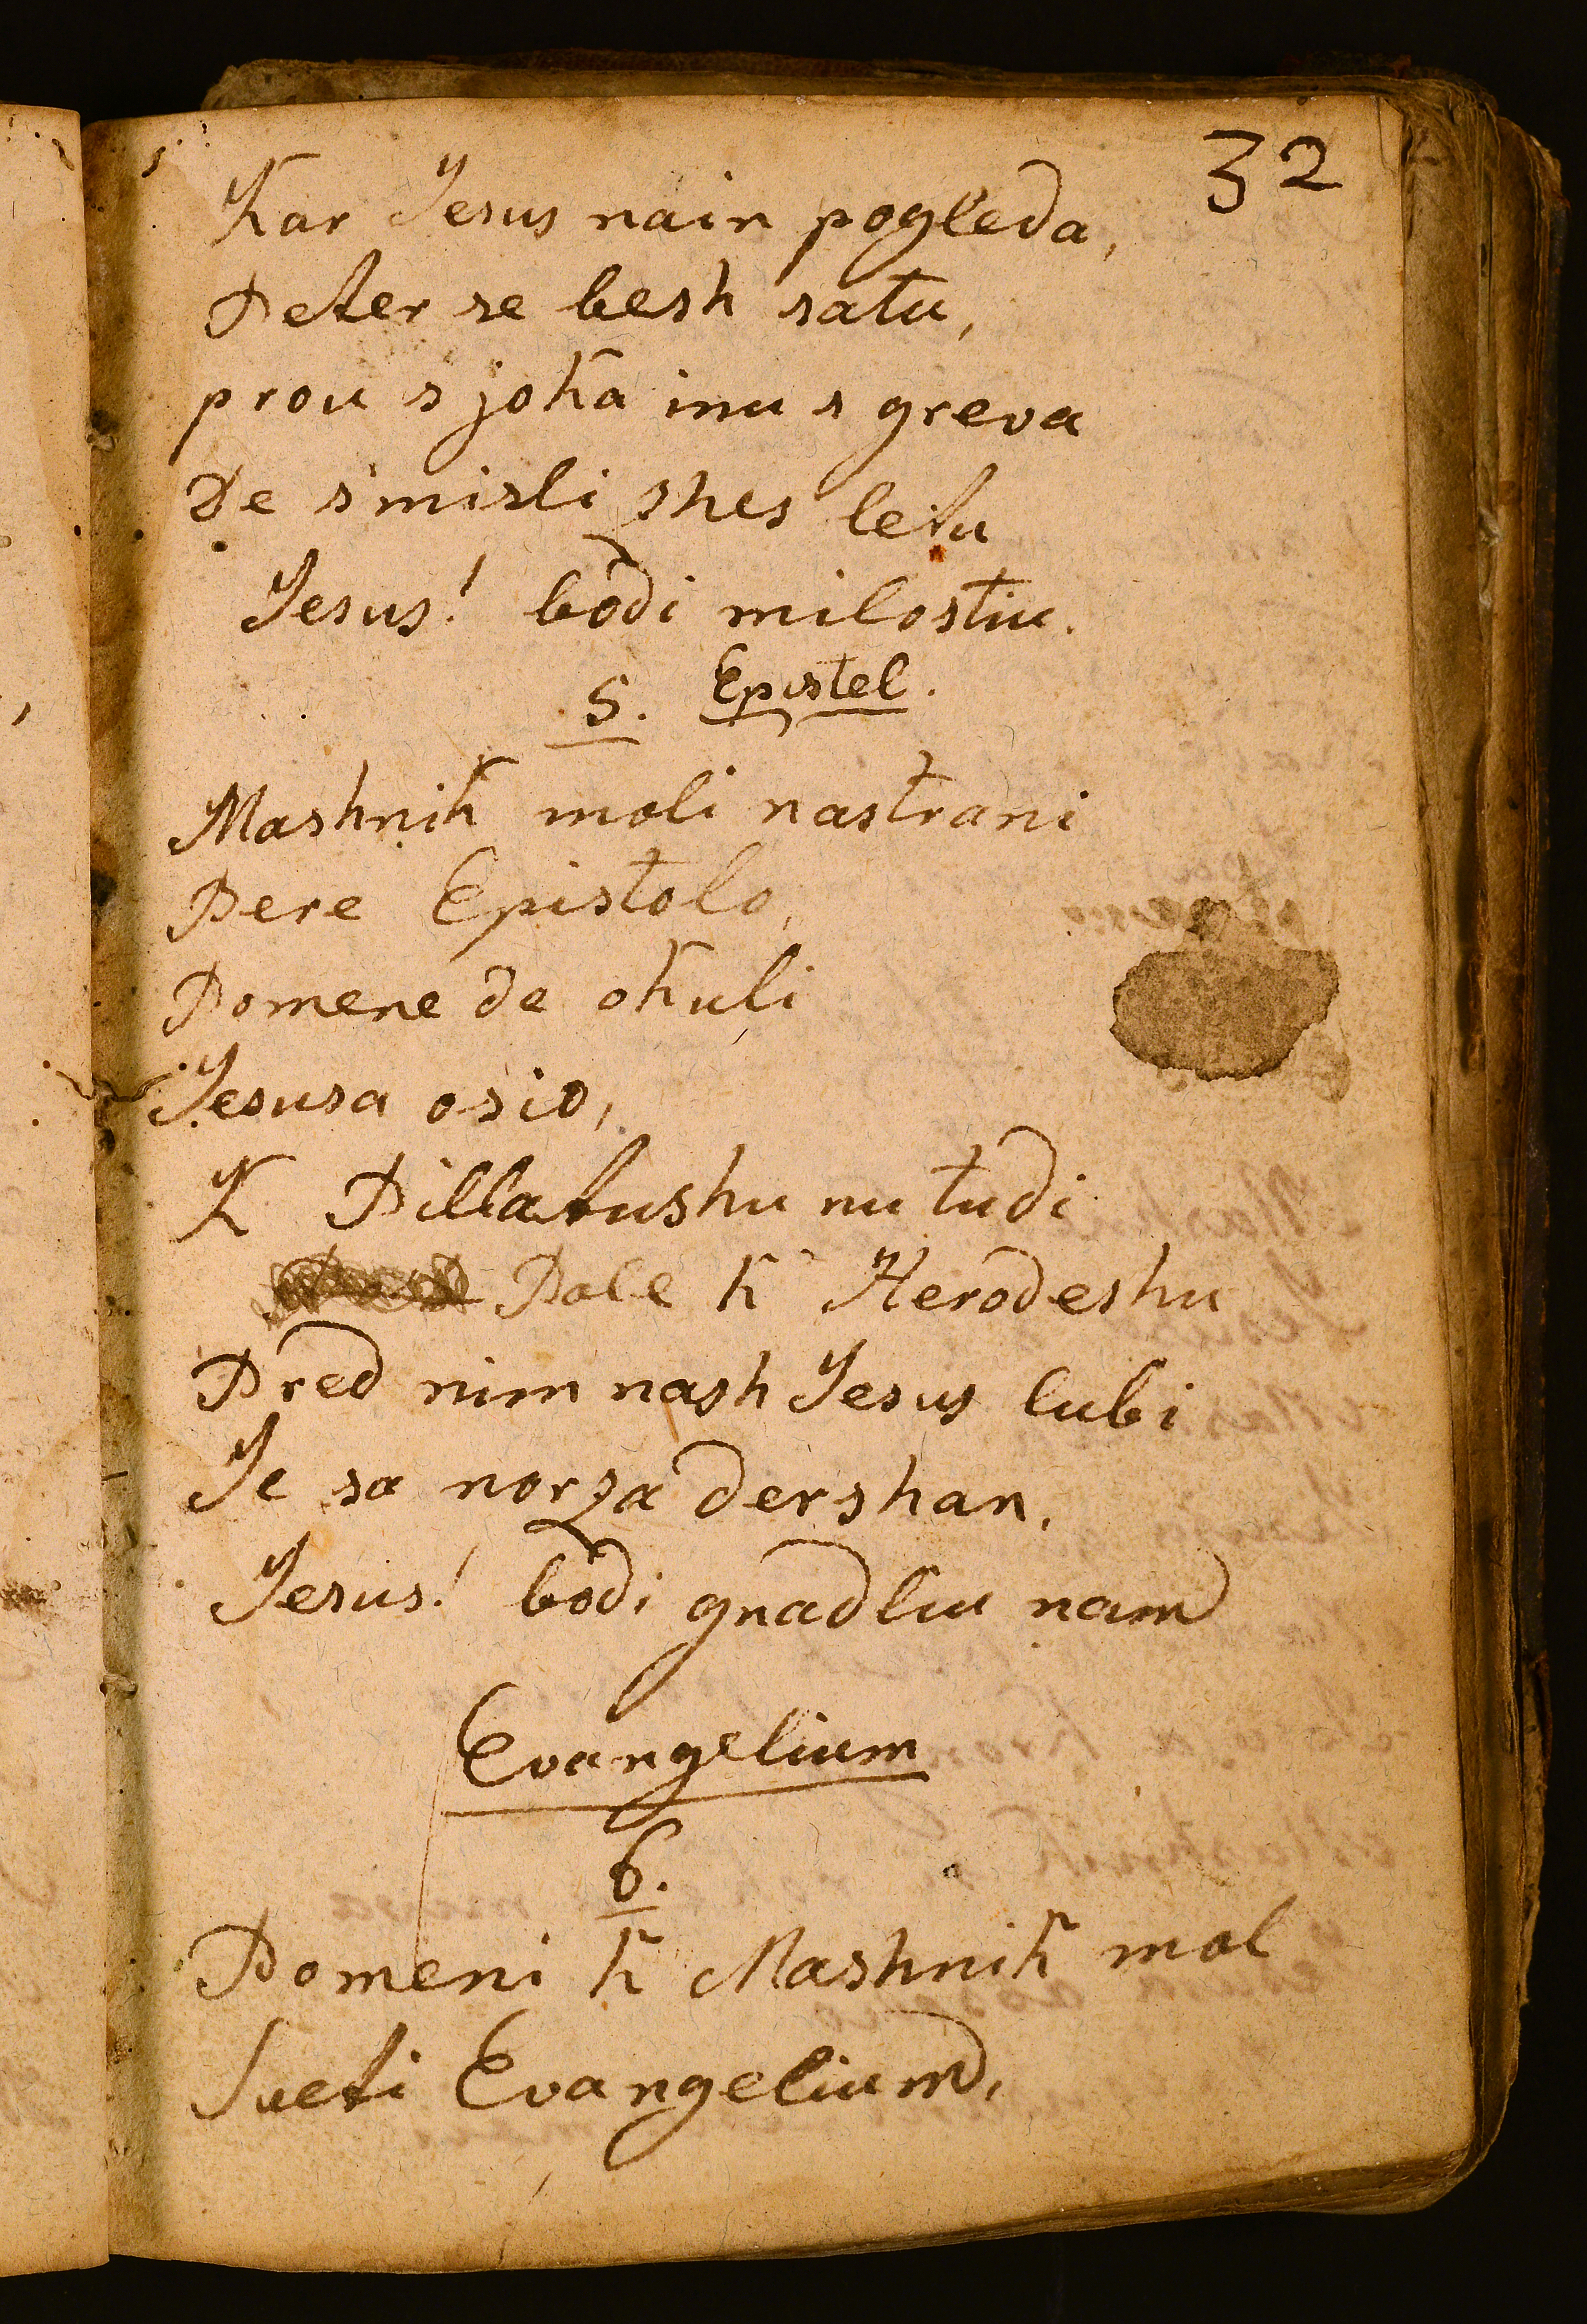 32
Kar Jesus nain pogleda,
Peter se besh satu,
prou s joka inu s greva
De smisli shes letu
Jesus! bodi milostiu.
5. Epistel.
Mashnik moli nastrani
Pere Epistolo,
Pomene de okuli
Jesusa osio,
K Pillatushu nu tudi
Pole k Herodeshu
Pred nim nash Jesus lubi
Je sa norza dershan,
Jesus! bodi gnadliu nam
Evangelium
6.
Pomeni k Mashnik mol
Sveti Evangelium,